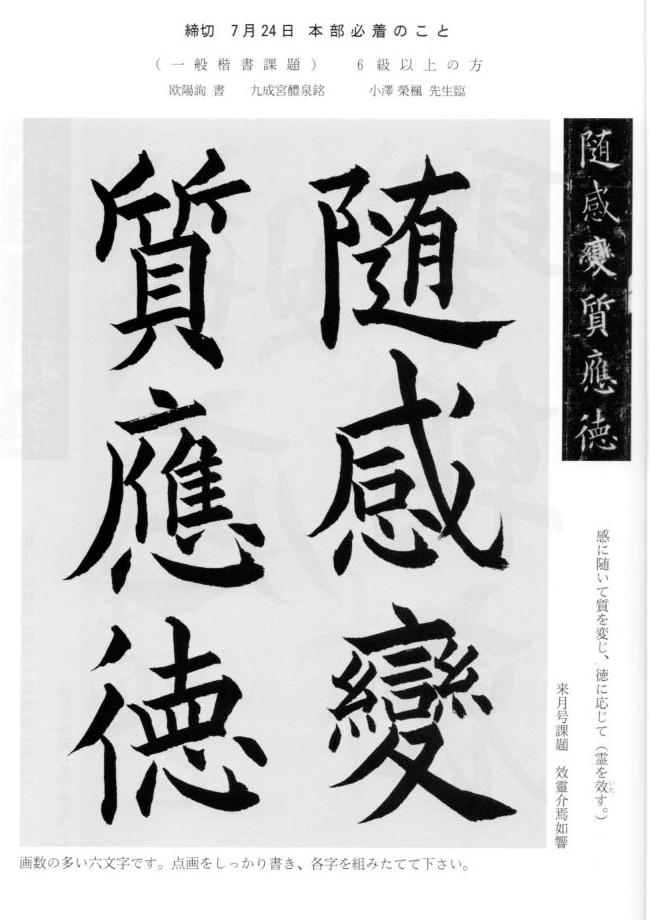 締切 7月24日 本部必着のこと
（一般楷書課題） 6級以上の方
欧陽詢 書 九成宮醴泉銘 小澤 榮楓 先生臨
随感變質應徳
随感變
質應徳
感に随いて質を変じ、徳に応じて（霊を效す。）
いた
来月号課題 效靈介焉如響
画数の多い六文字です。点画をしっかり書き、各字を組みたてて下さい。